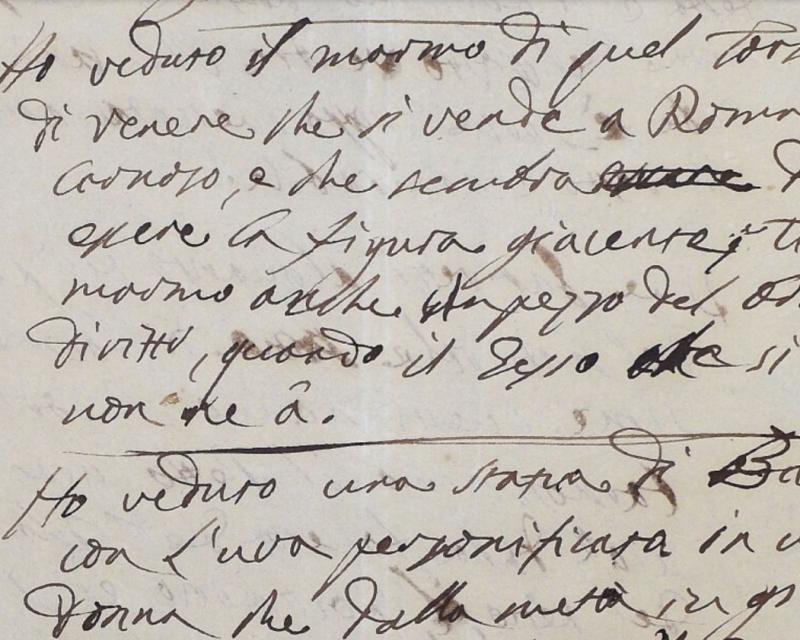 Ho veduto il marmo di quel Tors
di venere che si vende a Roma
carnoso, e che sembra
essere la figura giacente; 
marmo anche un pezzo del
diritto, quando il Gesso si
non ne â.
Ho veduto una statua di Ba
con l'uva personificata in
Donna che dalla metà in